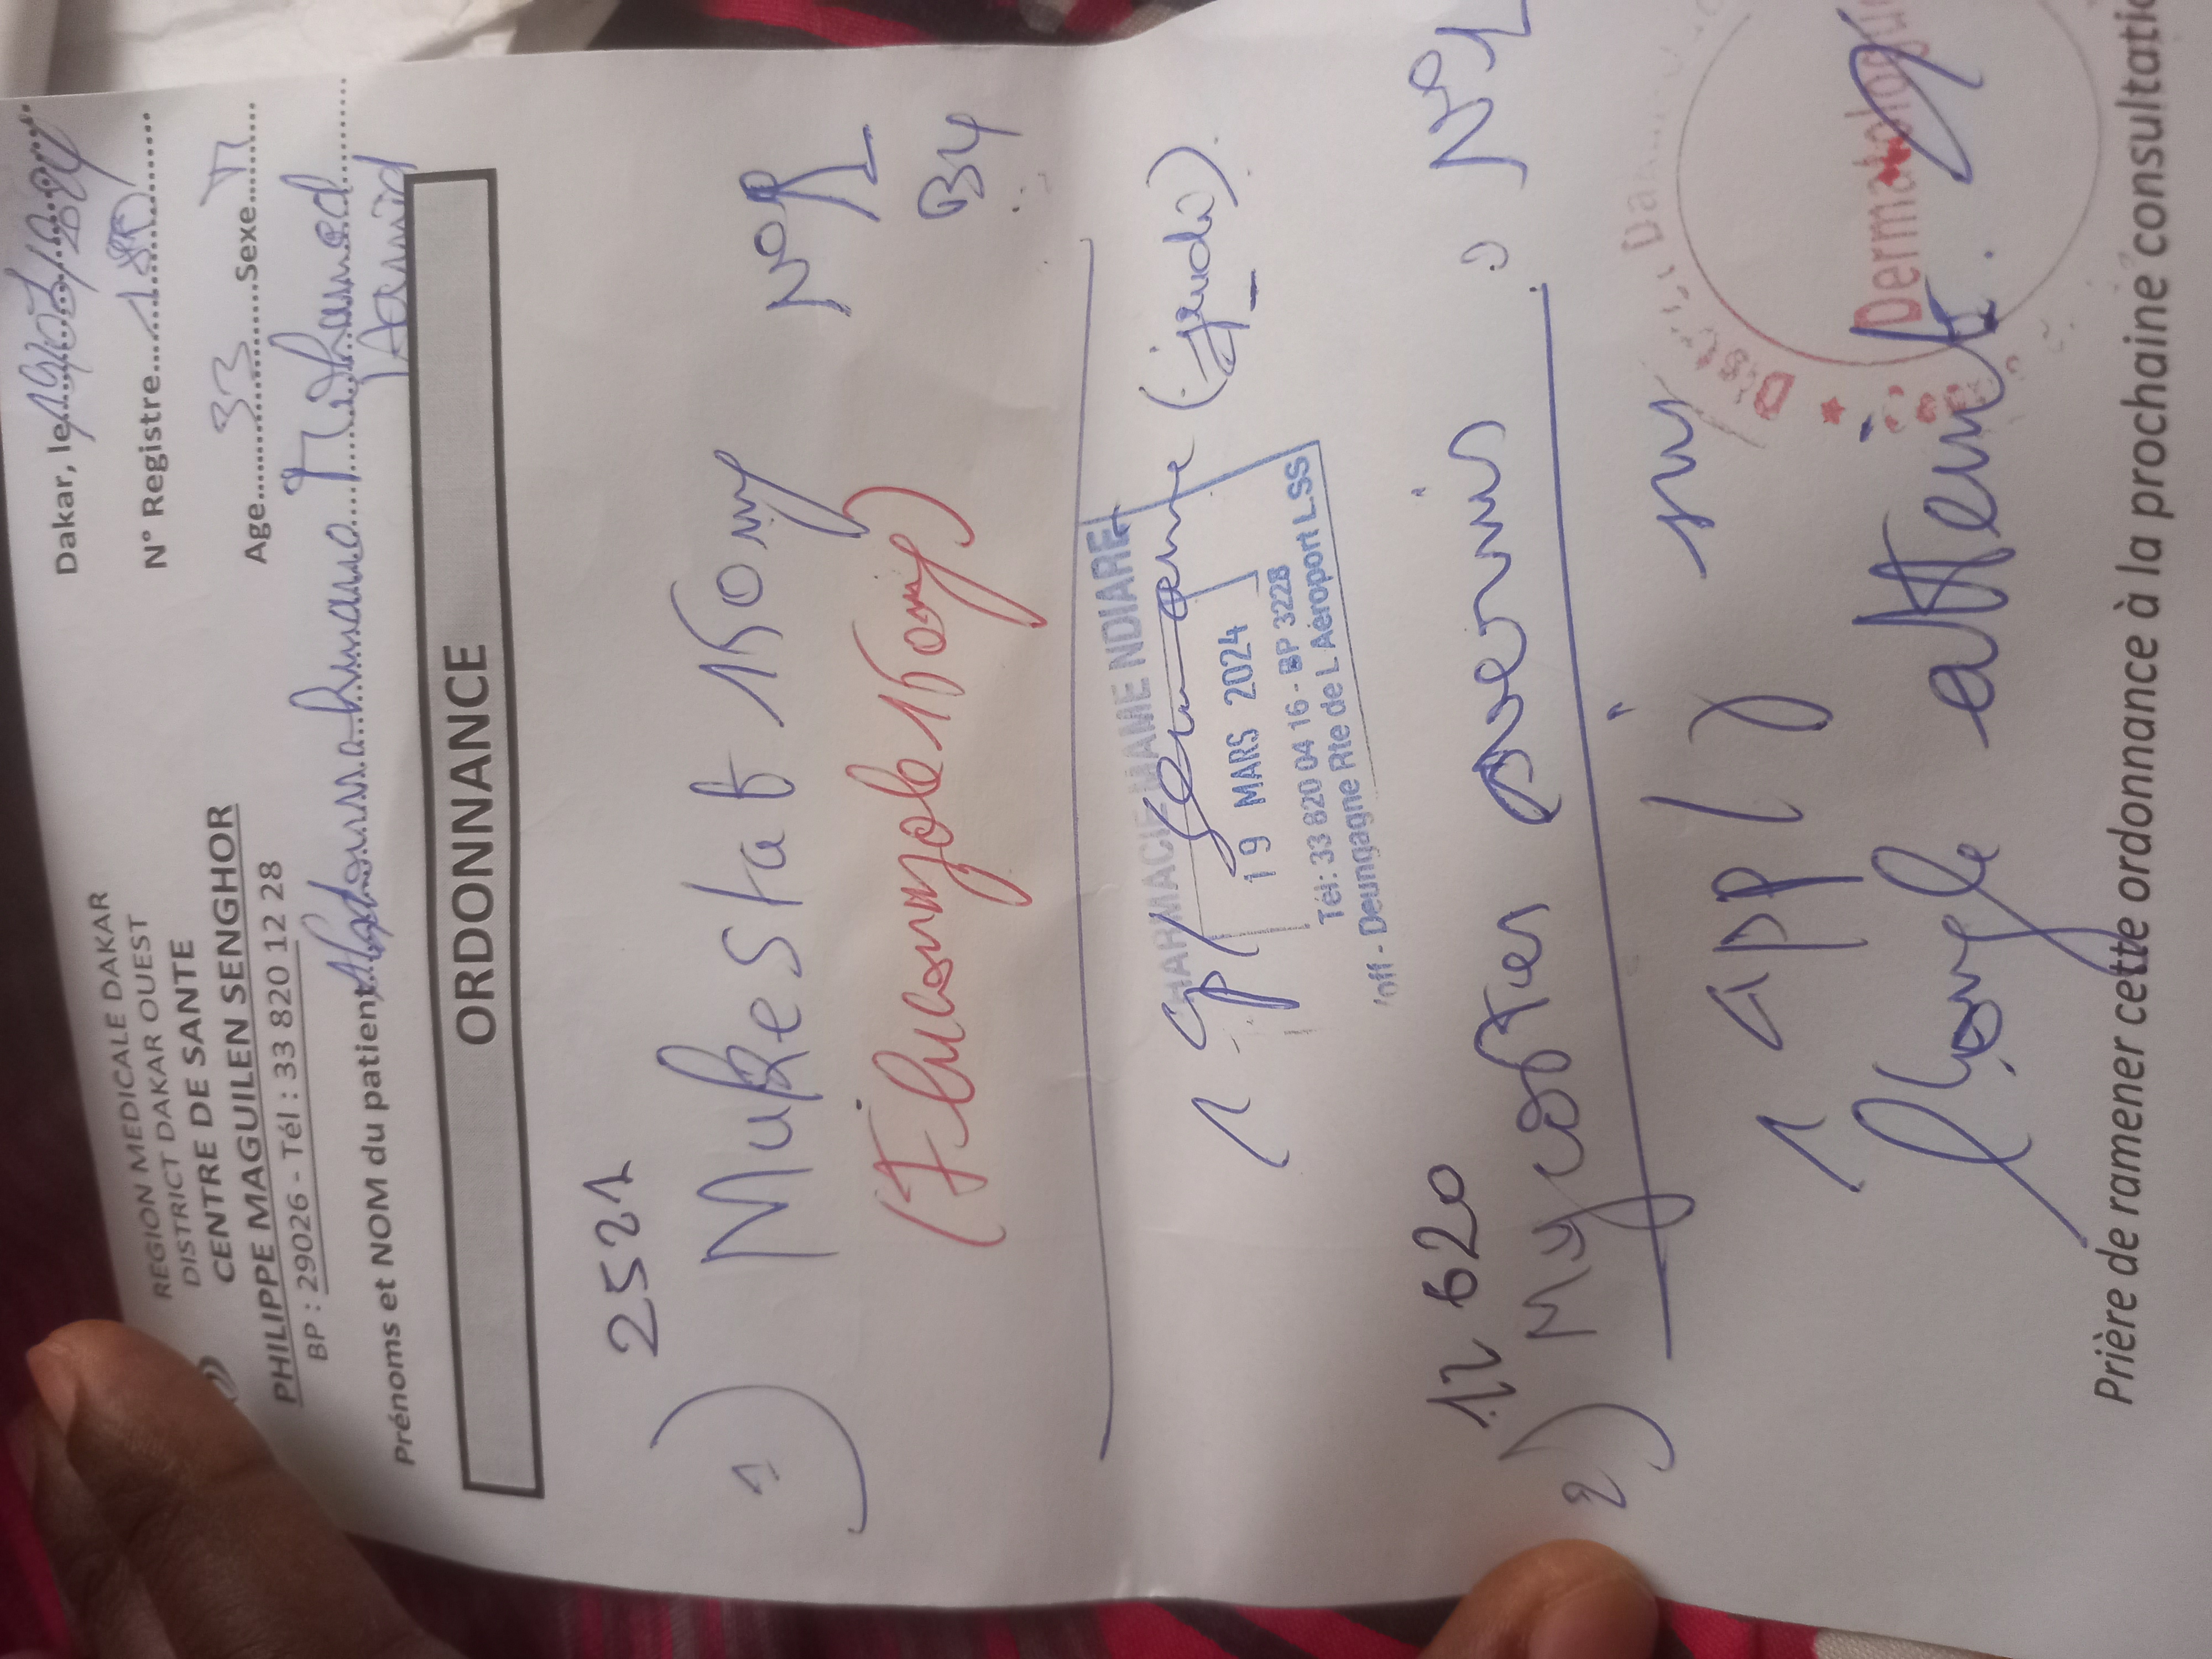 REGION MEDICALE DAKAR
DISTRICT DAKAR OUEST
CENTRE DE SANTE
PHILIPPE MAGUILEN SENGHOR
BP : 29026 - Tél : 33 820 12 28
Dakar, le 19/03/2024
N° Registre 180
Age 33 Sexe M
Prénoms et NOM du patient Mohamed
ORDONNANCE
2521
1) Mukestat 150 mg N° 1
(Fluconazole 150 mg) B4
1 cp / semaine (jeudi)
PHARMACIE MAME NDIARE
19 MARS 2024
Tél: 33 820 04 16 - BP 3228
Yoff - Deungagne Rte de L Aéroport LSS
12 620
2) Mycoster N° 1
1 app / j sur
l'ongle atteint.
District Dakar
Dermatologue
Prière de ramener cette ordonnance à la prochaine consultatio